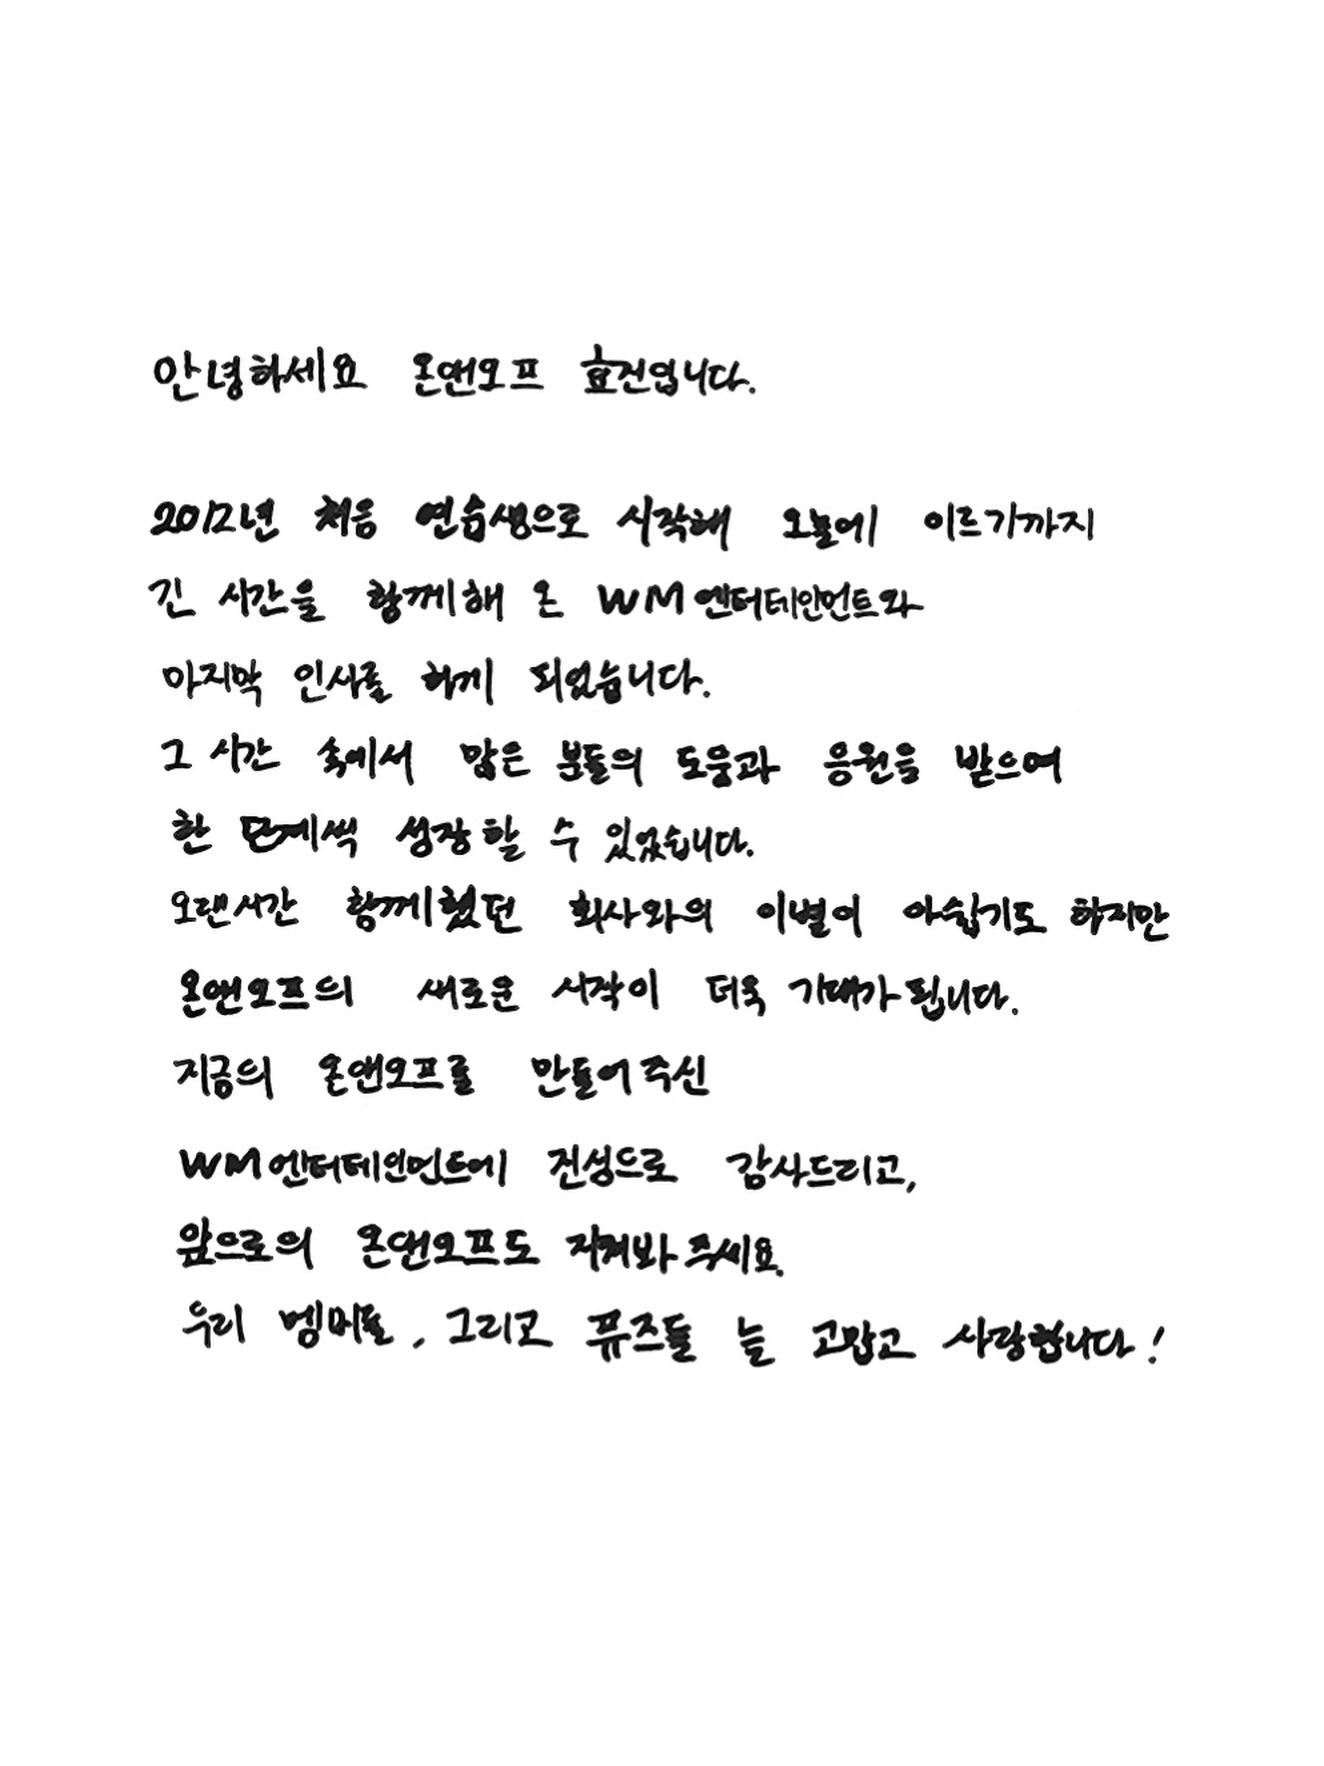 안녕하세요 온앤오프 효진입니다.
2012년 처음 연습생으로 시작해 오늘에 이르기까지
긴 시간을 함께해 온 WM엔터테인먼트와
마지막 인사를 하게 되었습니다.
그 시간 속에서 많은 분들의 도움과 응원을 받으며
한 단계씩 성장할 수 있었습니다.
오랜시간 함께했던 회사와의 이별이 아쉽기도 하지만
온앤오프의 새로운 시작이 더욱 기대가 됩니다.
지금의 온앤오프를 만들어 주신
WM엔터테인먼트에 진심으로 감사드리고,
앞으로의 온앤오프도 지켜봐 주세요.
우리 멤버들, 그리고 퓨즈들 늘 고맙고 사랑합니다!